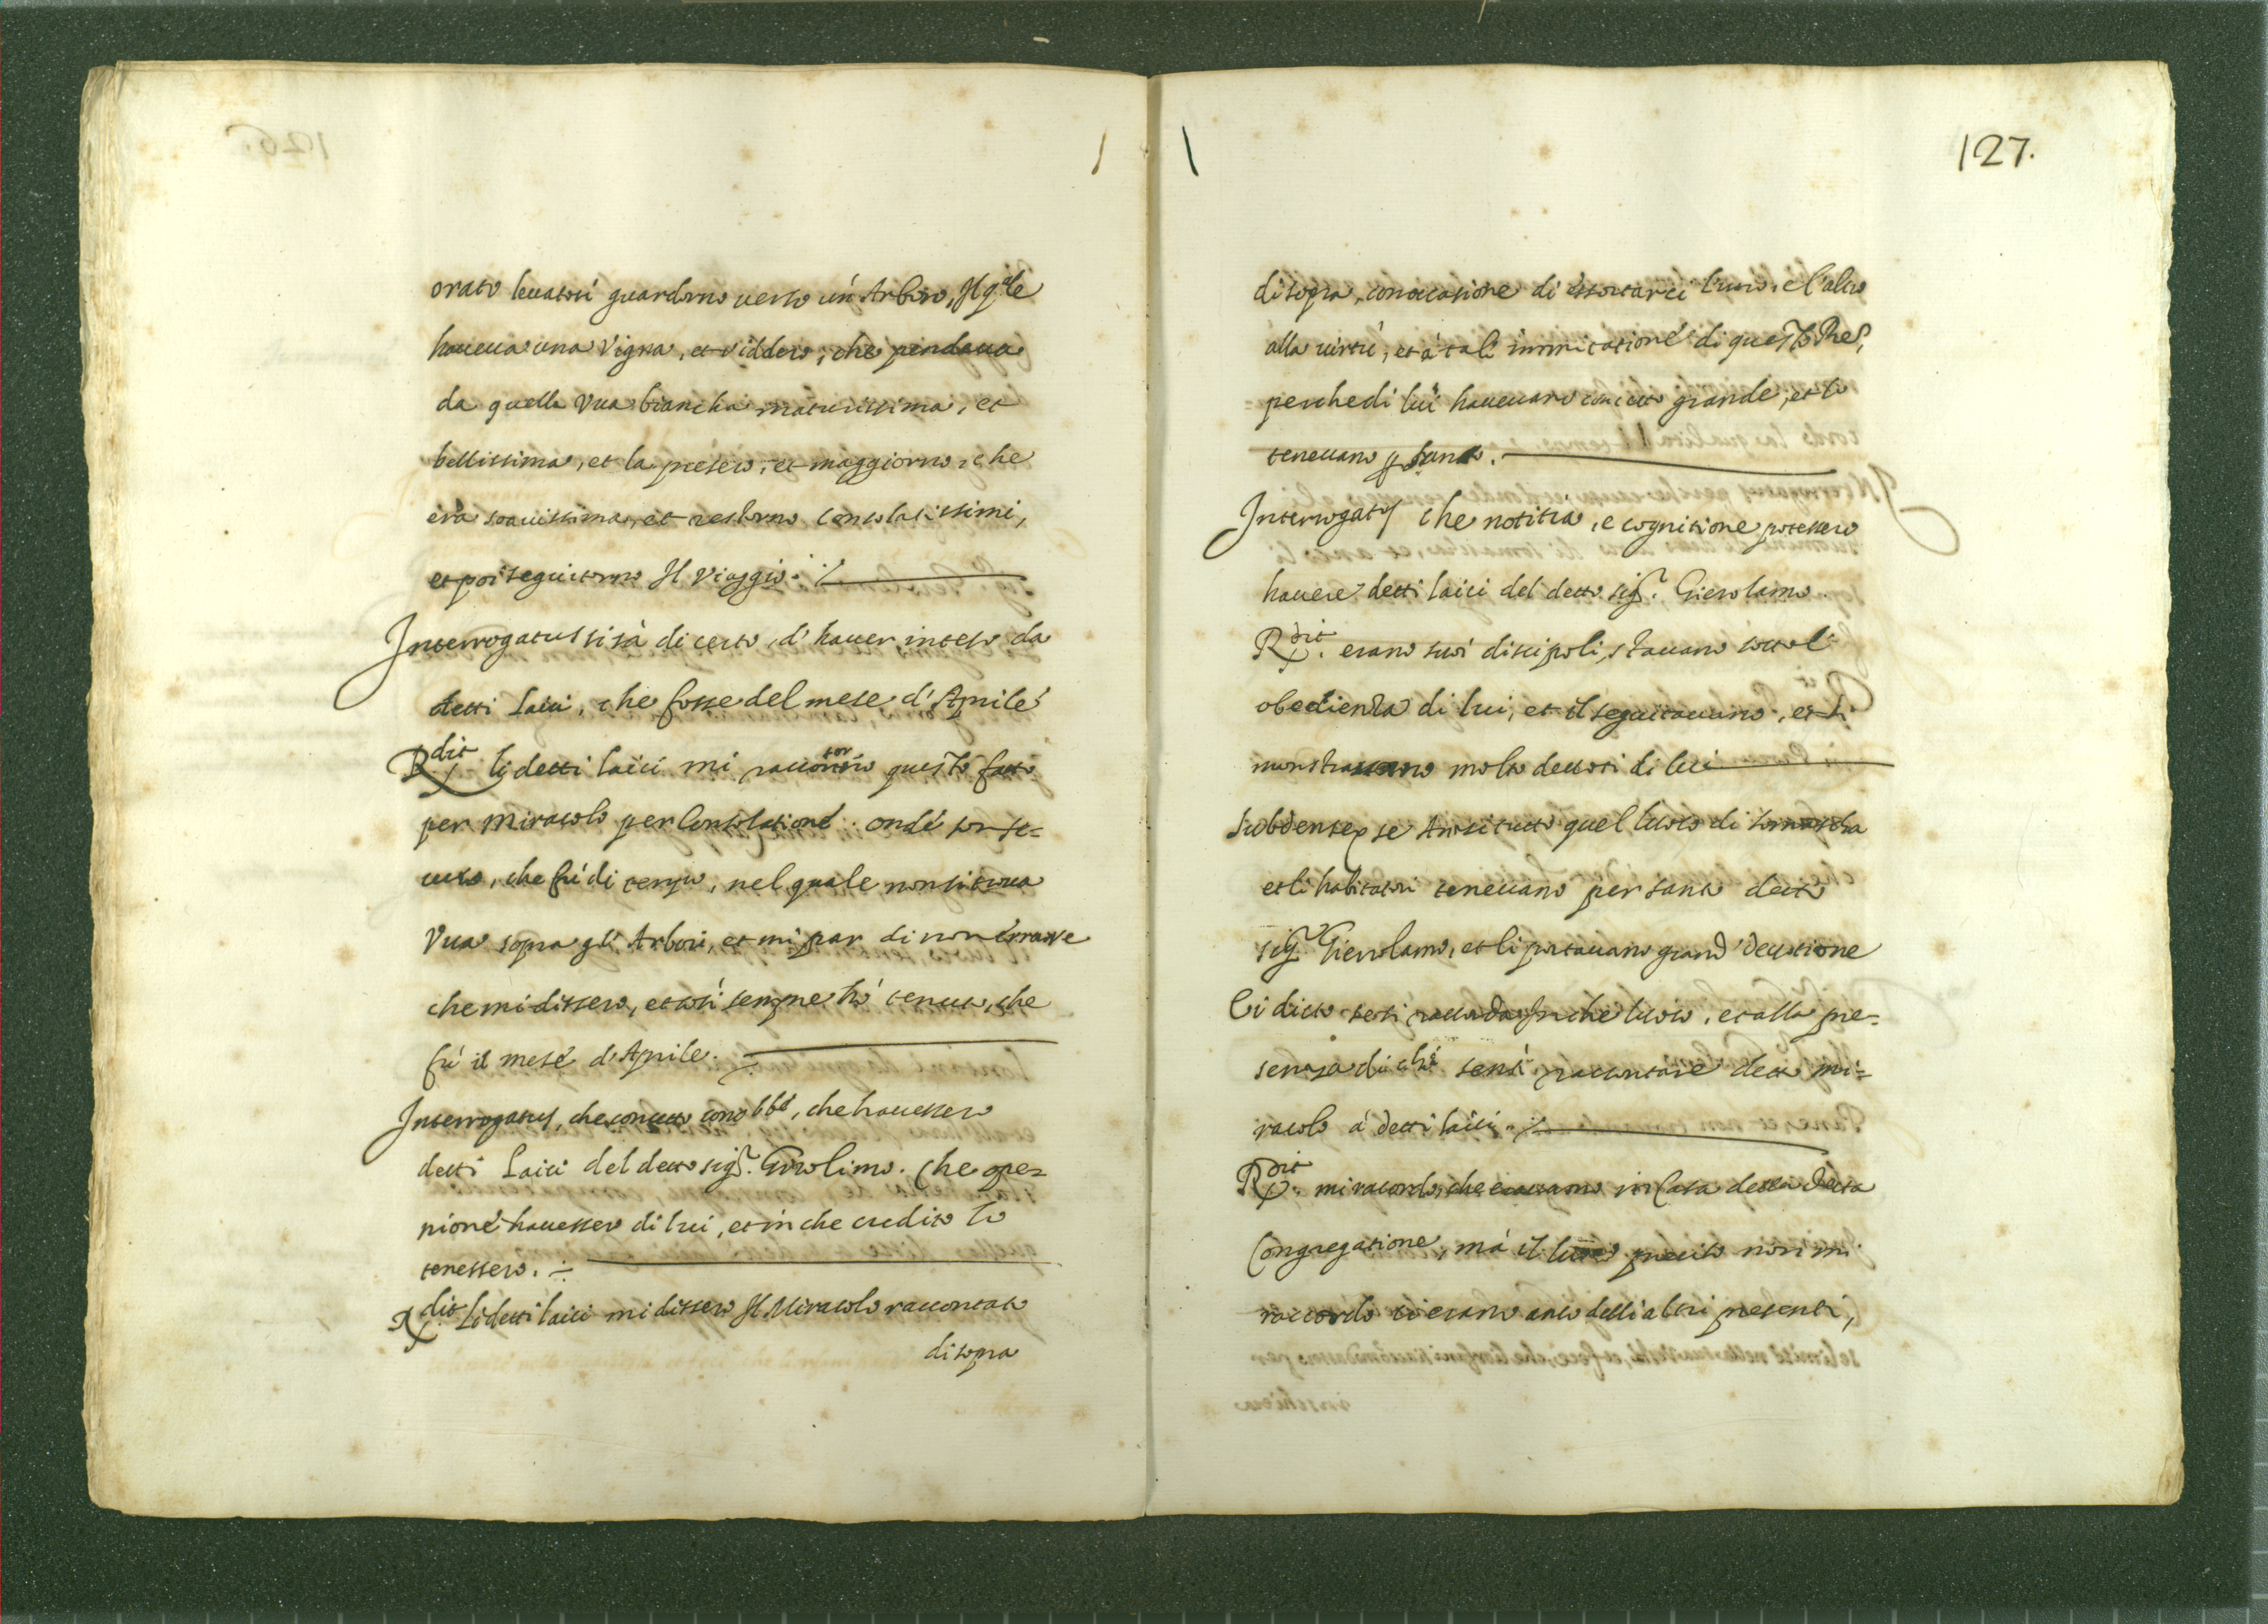 orato leuatosi guardorno uerso un' Arbore, Il q.le
haueua una Vigna, et viddero, che pendeua
da quella Vua biancha maturissima, et
bellissima, et la presero, et maggiorno, che
era soauissima, et restorno consolatissimi,
et poi seguitorno Il Viaggio. /.
Interrogatus si sà di certo, d'hauer inteso da
detti Laici, che fosse del mese d'Aprile
R.dit li detti laici mi raccontorno questo fatto
per Miracolo per Consolatione. onde son se=
curo, che fù di tempo, nel quale non si troua
Vua sopra gl'Arbori, et mi par di non errare
che mi dissero, et così sempre hò tenuto, che
fù il mese d'Aprile.
Interrogatus, che concetto, che hauessero
detti Laici del detto sig.r Girolimo. Che ope=
nione hauessero di lui, et in che credito lo
tenessero.
R.dit Li detti laici mi dissero Il Miracolo raccontato
di sopra
127.
di sopra, con occasione di essortarci l'uno, e l'altro
alla uirtù, et à tali immitatione di questo
perche di lui haueuano concetto grande, et lo
teneuano p santo.
Interrogatus che notitia, e cognitione potessero
hauere detti laici del detto sig.r Gierolamo.
R.dit. erano suoi discipoli, stauano sott'l
obedienza di lui, et il seguitauano, et si
monstrauano molto deuoti di lui
Subdens ex se Anzi tutto quel luoco di Somascha
et li habitatori teneuano per santo detto
sig.r Gierolamo, et li portauano grand' deuotione
Ei dicto se si raccorda in che luoco, et alla pre=
senza di chi sentì raccontare detto mi=
racolo à detti laici.
R.dit. mi racordo, che erauamo in Casa della detta
Congregatione, mà il luoco preciso non mi
raccordo ci erano anco delli altri presenti,